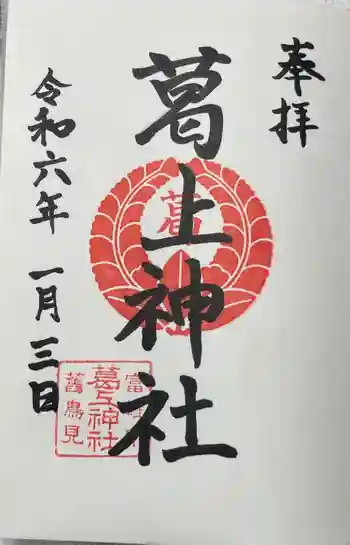 奉拝
葛上神社
葛
令和六年 一月 三日
富
葛上神社
舊鳥見